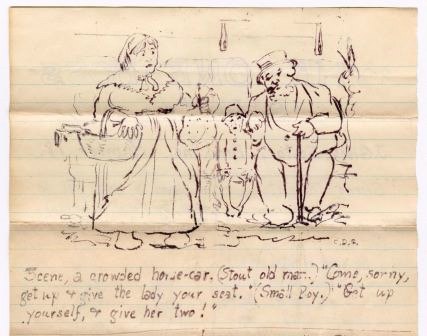 C.D.G.
Scene, a crowded horse-car. (Stout old man.) "Come, sonny,
get up & give the lady your seat." (Small Boy.) "Get up
yourself, & give her two!"